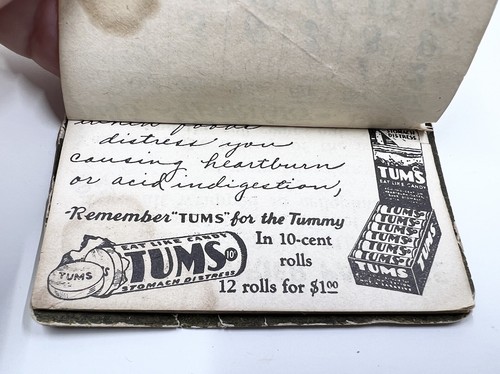 when foods
distress you
causing heartburn
or acid indigestion,
Remember "TUMS" for the Tummy
In 10-cent
rolls
12 rolls for $1.00
EAT LIKE CANDY
TUMS
10¢
STOMACH DISTRESS
TUMS
STOMACH DISTRESS
TUMS
EAT LIKE CANDY
TUMS
TUMS
TUMS
TUMS
TUMS